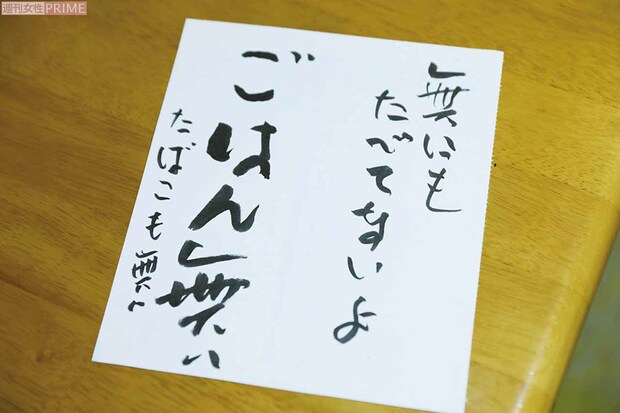 週刊女性PRIME
無にも
たべてないよ
ごはん無い
たばこも無い